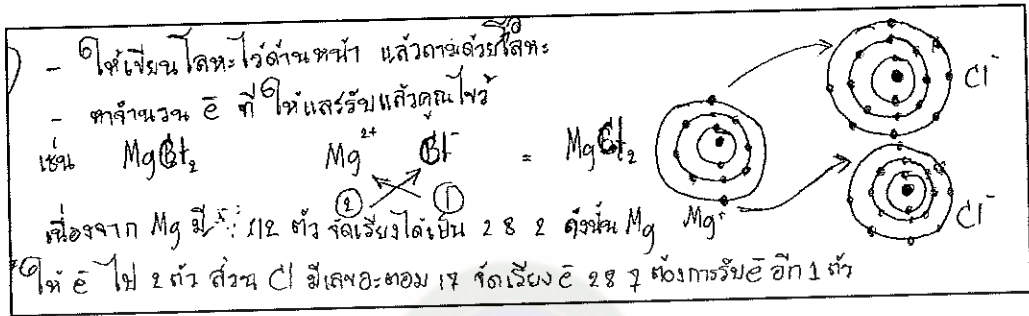 - ให้เขียนโลหะไว้ด้านหน้า แล้วตามด้วยอโลหะ
- หาจำนวน ē ที่ให้และรับแล้วคูณไขว้
เช่น MgCl₂ Mg²⁺ Cl⁻ = MgCl₂
② ①
เนื่องจาก Mg มี 12 ตัว จัดเรียงได้เป็น 2 8 2 ดังนั้น Mg
ให้ ē ไป 2 ตัว ส่วน Cl มีเลขอะตอม 17 จัดเรียง ē 2 8 7 ต้องการรับ ē อีก 1 ตัว
Cl⁻
Mg⁺
Cl⁻